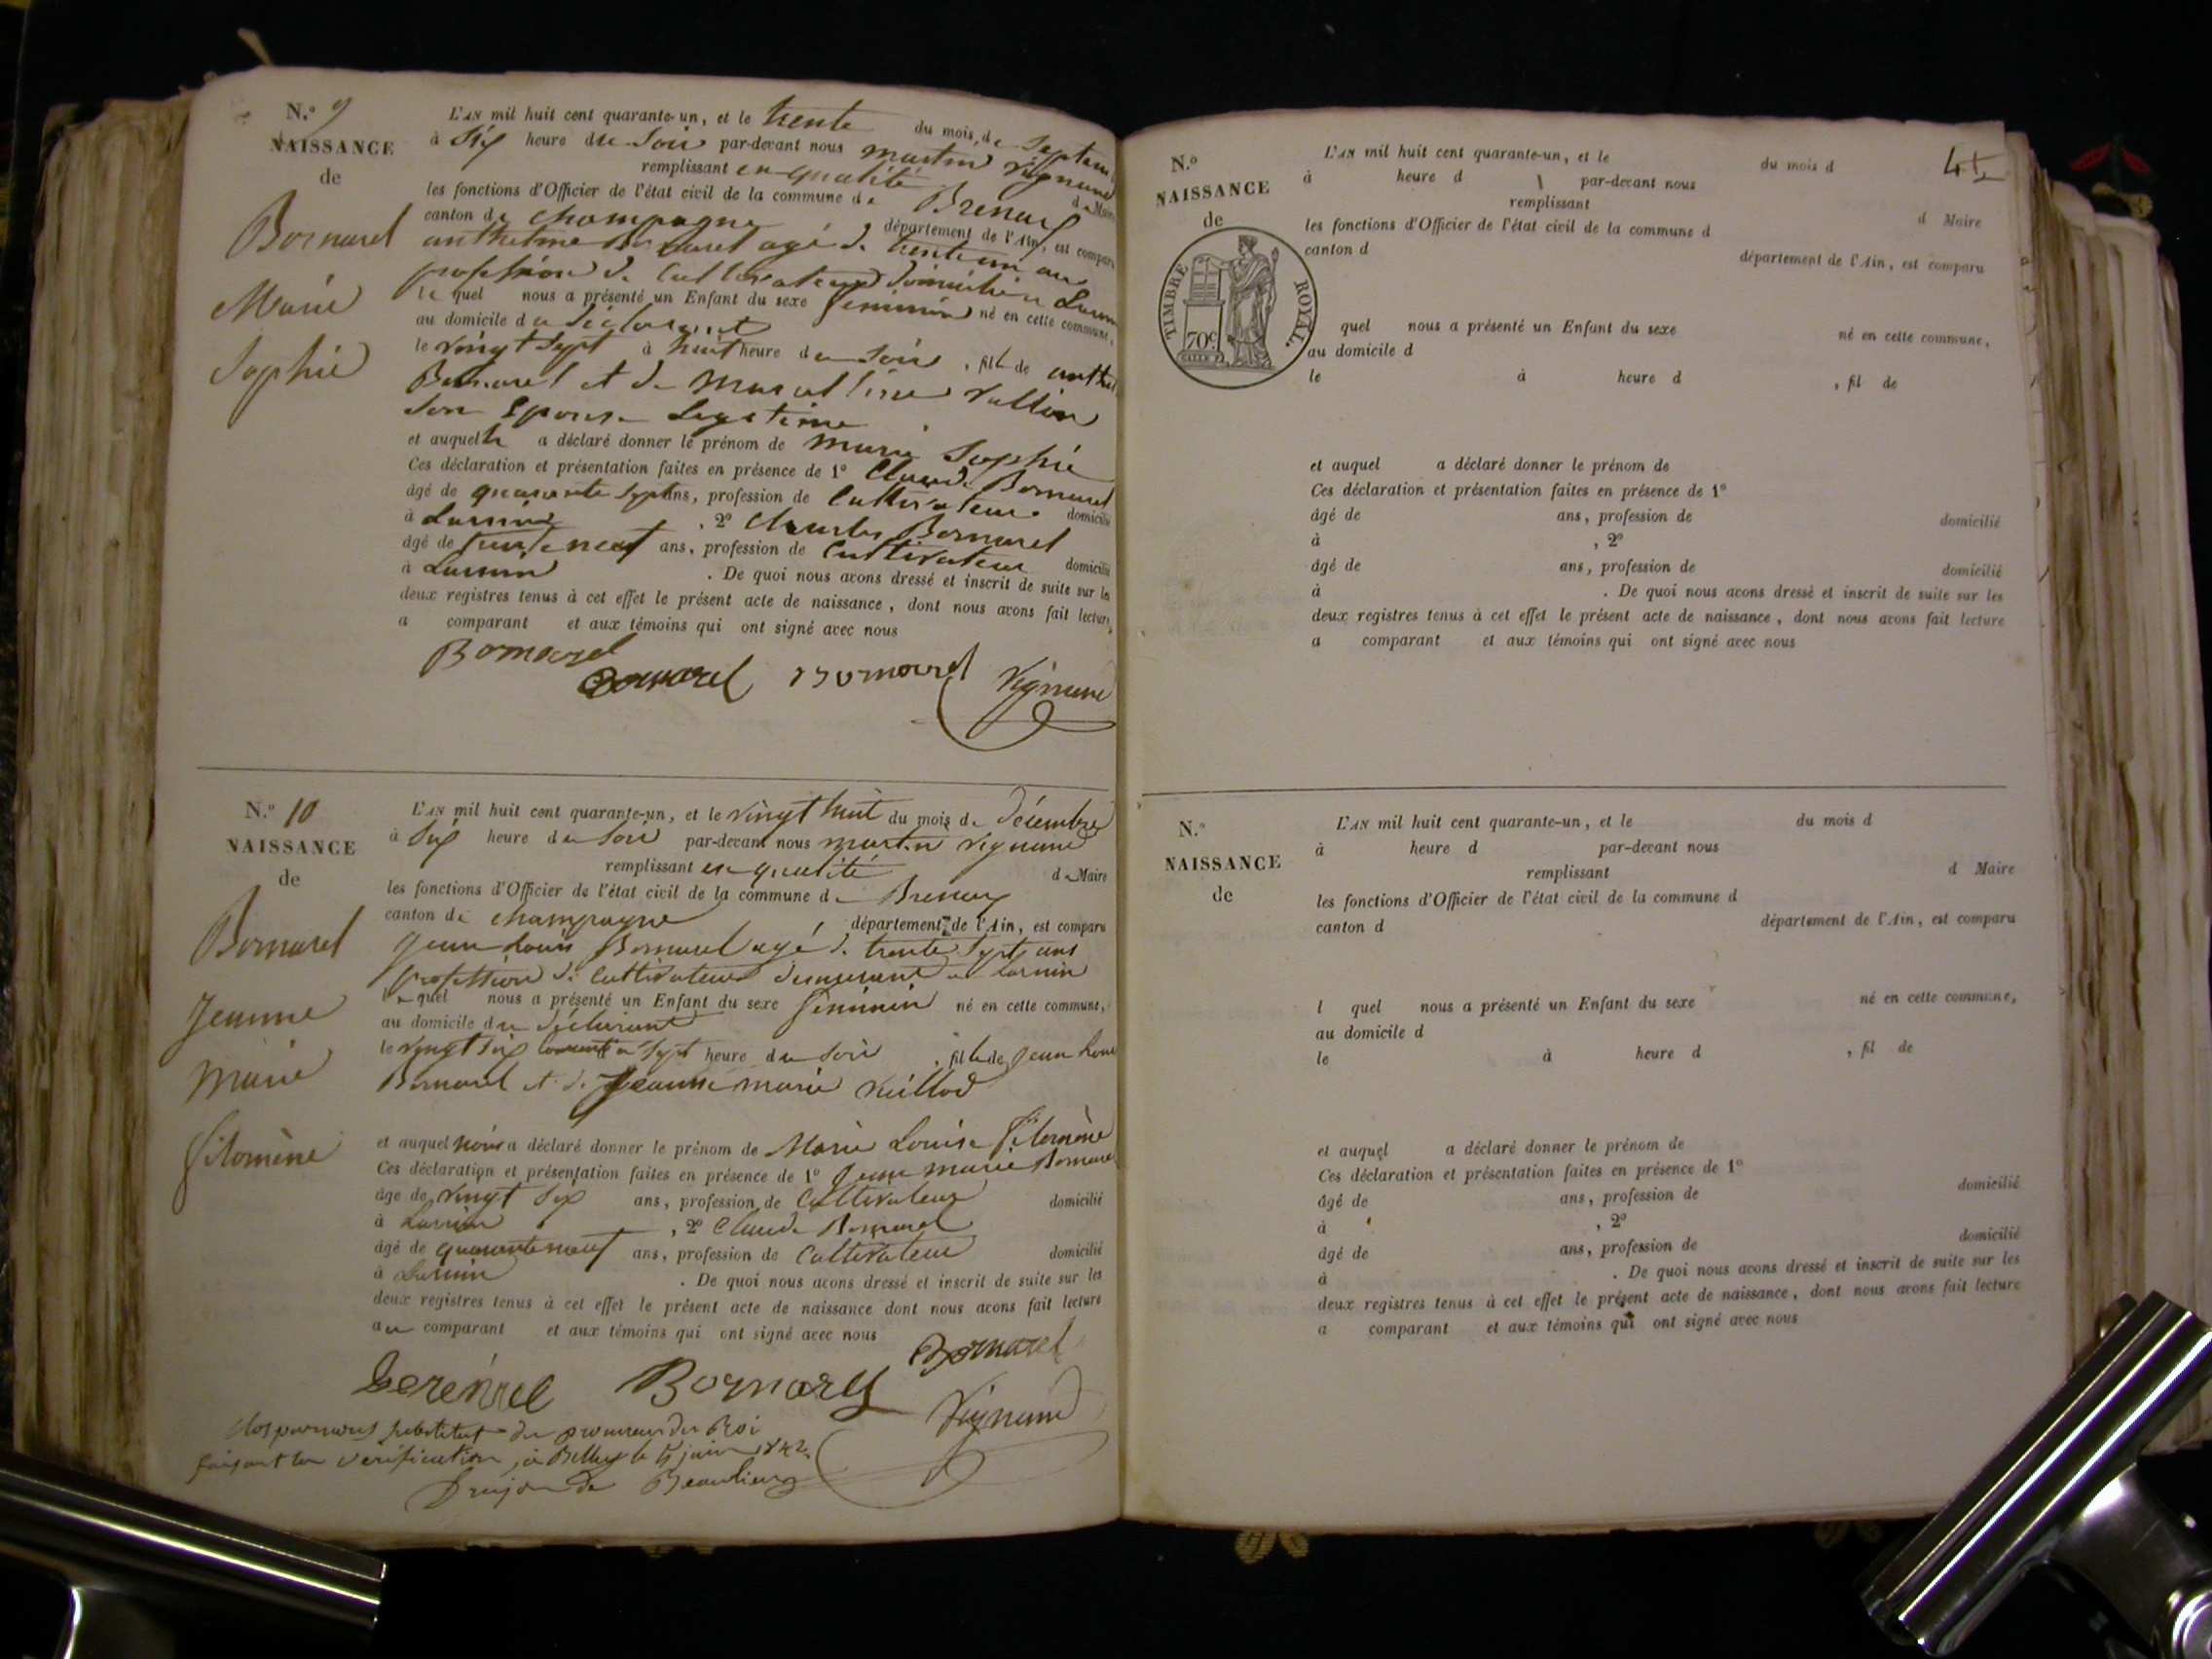 N.º 9
NAISSANCE
de
Bornarel
Marie
Sophie
L'AN mil huit cent quarante-un, et le trente du mois de Septem
à Six heure du Soir par-devant nous martin vignand
remplissant en qualité d e Maire
les fonctions d'Officier de l'état civil de la commune de Brenaz
canton de champagne département de l'Ain, est comparu
anthelme Bornarel agé de trente un ans
profession de Cultivateur domicilié a Lusin
le quel nous a présenté un Enfant du sexe feminin né en cette commune,
au domicile du déclarant
le vingt Sept à huit heure du Soir , fille de anthel
Bornarel et de Marcelline Vallin
Son Epouse Legetime
et auquel il a déclaré donner le prénom de Marie Sophie
Ces déclaration et présentation faites en présence de 1º Claude Bornarel
âgé de quarante Sept ans, profession de Cultivateur domicilié
à , 2º Charles Bornarel
âgé de trente neuf ans, profession de Cultivateur domicilié
à . De quoi nous avons dressé et inscrit de suite sur les
deux registres tenus à cet effet le présent acte de naissance, dont nous avons fait lecture
a comparant et aux témoins qui ont signé avec nous
Bornarel
Bornarel Bornarel Vignand
N.º 10
NAISSANCE
de
Bornarel
Jeanne
Marie
filomène
L'AN mil huit cent quarante-un, et le vingt huit du mois de décembre
à Six heure du Soir par-devant nous martin vignand
remplissant en qualité de Maire
les fonctions d'Officier de l'état civil de la commune de Brenaz
canton de champagne département de l'Ain, est comparu
Jean Louis Bornarel agé de trente Sept ans
profession de Cultivateur demeurant a
le quel nous a présenté un Enfant du sexe feminin né en cette commune,
au domicile du déclarant
le vingt Six courant a Sept heure du Soir , fille de Jean Louis
Bornarel et de Jeanne marie
et auquel nous a déclaré donner le prénom de Marie Louise filomène
Ces déclaration et présentation faites en présence de 1º Jean marie Bornarel
âgé de vingt Six ans, profession de Cultivateur domicilié
à , 2º Claude Bornarel
âgé de quarante neuf ans, profession de Cultivateur domicilié
à . De quoi nous avons dressé et inscrit de suite sur les
deux registres tenus à cet effet le présent acte de naissance dont nous avons fait lecture
au comparant et aux témoins qui ont signé avec nous
Bornarel Bornarel
Vignand
Clos par nous Substitut du procureur du Roi
faisant la vérification, à Belley le 5 juin 1842.
Drujon de Beaulieu
45
N.º
NAISSANCE
de
TIMBRE ROYAL.
70c
L'AN mil huit cent quarante-un, et le du mois d
à heure d par-devant nous
remplissant d Maire
les fonctions d'Officier de l'état civil de la commune d
canton d département de l'Ain, est comparu
quel nous a présenté un Enfant du sexe né en cette commune,
au domicile d
le à heure d , fil de
et auquel a déclaré donner le prénom de
Ces déclaration et présentation faites en présence de 1º
âgé de ans, profession de domicilié
à , 2º
âgé de ans, profession de domicilié
à . De quoi nous avons dressé et inscrit de suite sur les
deux registres tenus à cet effet le présent acte de naissance, dont nous avons fait lecture
a comparant et aux témoins qui ont signé avec nous
N.º
NAISSANCE
de
L'AN mil huit cent quarante-un, et le du mois d
à heure d par-devant nous
remplissant d Maire
les fonctions d'Officier de l'état civil de la commune d
canton d département de l'Ain, est comparu
l quel nous a présenté un Enfant du sexe né en cette commune,
au domicile d
le à heure d , fil de
et auquel a déclaré donner le prénom de
Ces déclaration et présentation faites en présence de 1º
âgé de ans, profession de domicilié
à , 2º
âgé de ans, profession de domicilié
à . De quoi nous avons dressé et inscrit de suite sur les
deux registres tenus à cet effet le présent acte de naissance, dont nous avons fait lecture
a comparant et aux témoins qui ont signé avec nous